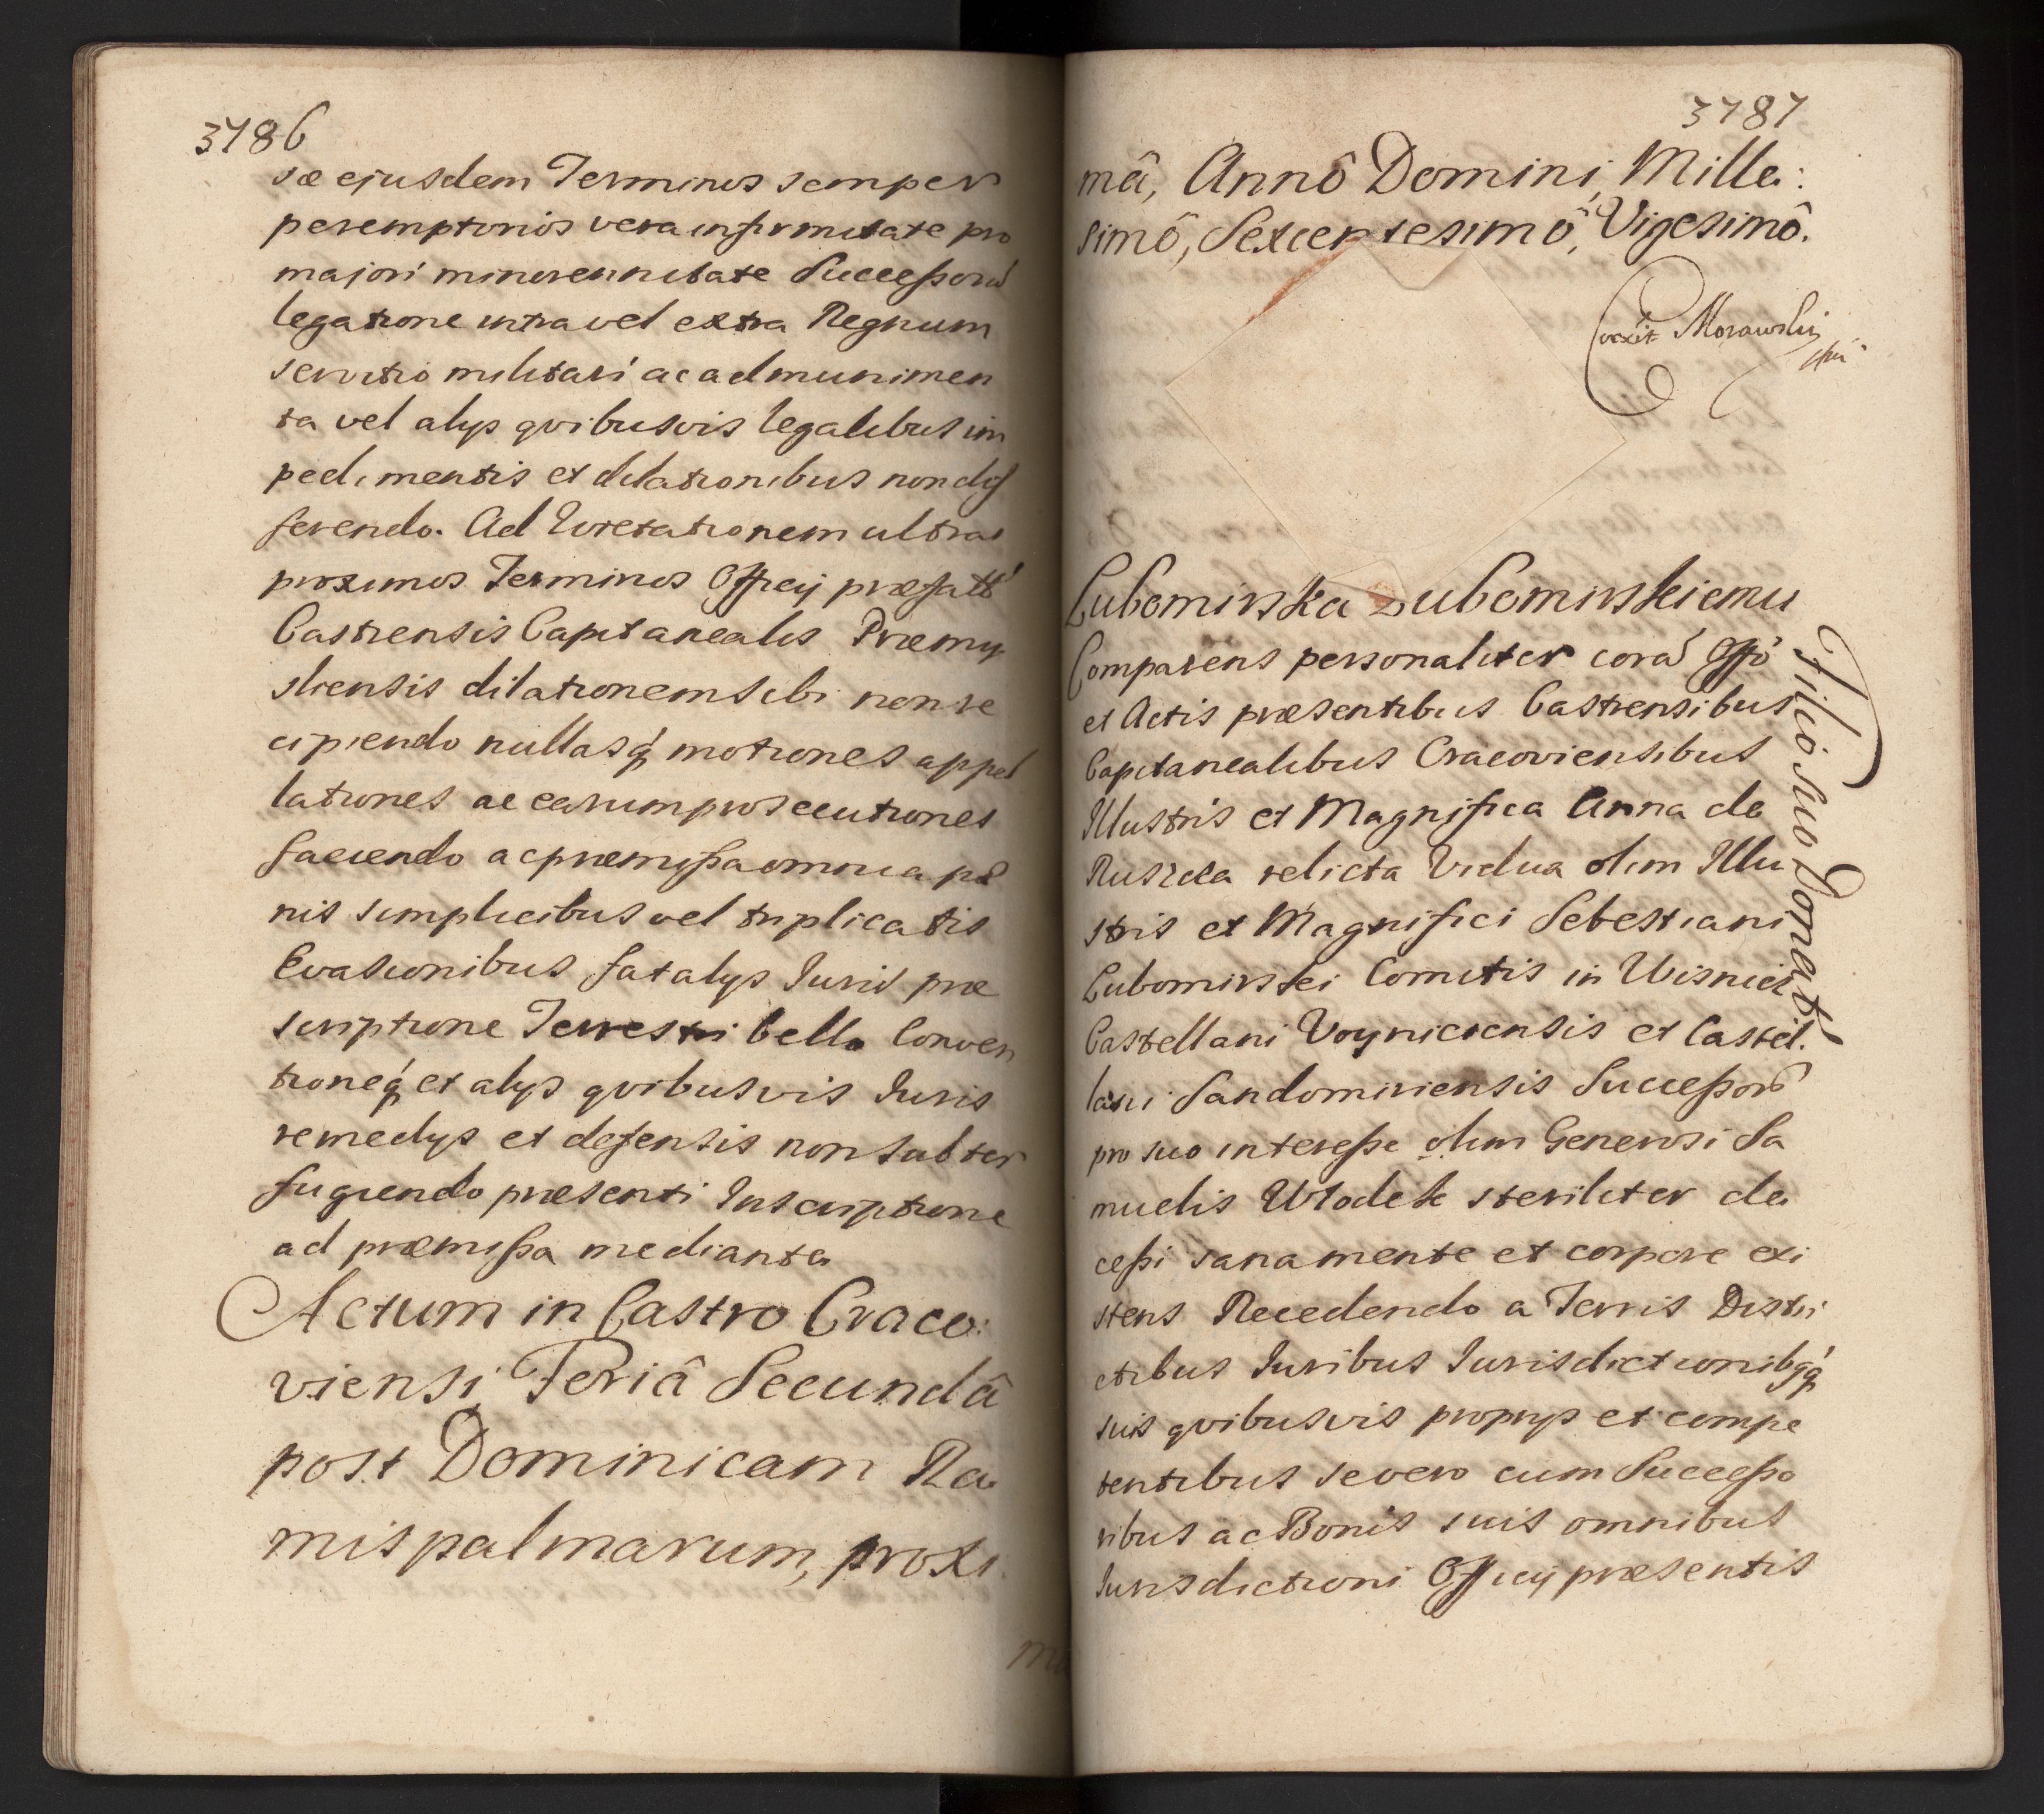 3786
sæ ejusdem Terminos semper
peremptorios vera infirmitate pro
majori minorennitate Succeßorũ
legatione intra vel extra Regnum
servitio militari ac ad munimen
ta vel alys qvibusvis legalibus im
pedimentis et dilationibus non dif
ferendo. Ad Wietationem ultra
proximos Terminos Officij præfatt'
Castrensis Capitanealis Præmy
sliensis dilationem sibi non re
cipiendo nullasq́ motiones appel
lationes ac earum prosecutiones
faciendo ac præmißa omnia pæ
nis simplicibus vel triplicatis
Evasionibus fatalys Juris præ
scriptione Terrestri bello Conven
tioneq́ et alys qvibusvis Juris
remedys et defensis non subter
fugiendo præsenti Inscriptione
ad præmißa mediante
Actum in Castro Craco:
viensi, Feriâ Secundâ
post Dominicam Ra
mis palmarum, proxi
ma
3787
mâ, Annô Domini, Mille:
simô, Sexcentesimô, Vigesimô.
Coxit Morawski
Lubomirska Lubomirskiemu
Filio suo Donat
Comparens personaliter corã Offõ
et Actis præsentibus Castrensibus
Capitanealibus Cracoviensibus
Illustris et Magnifica Anna de
Ruszcza relicta Vidua olim Illu
stris et Magnifici Sebestiani
Lubomirski Comitis in Wisnicz
Castellani Voyniciensis et Castel.
lani Sandomiriensis Succeßorũ
pro suo intereße olim Generosi Sa
muelis Wlodek steriliter de
ceßi sana mente et corpore exi
stens Recedendo a Terris Distri
ctibus Juribus Jurisdictionibq́q́
suis qvibusvis proprys et compe
tentibus se vero cum Succeßo
ribus ac Bonis suis omnibus
Jurisdictioni Officij præsentis